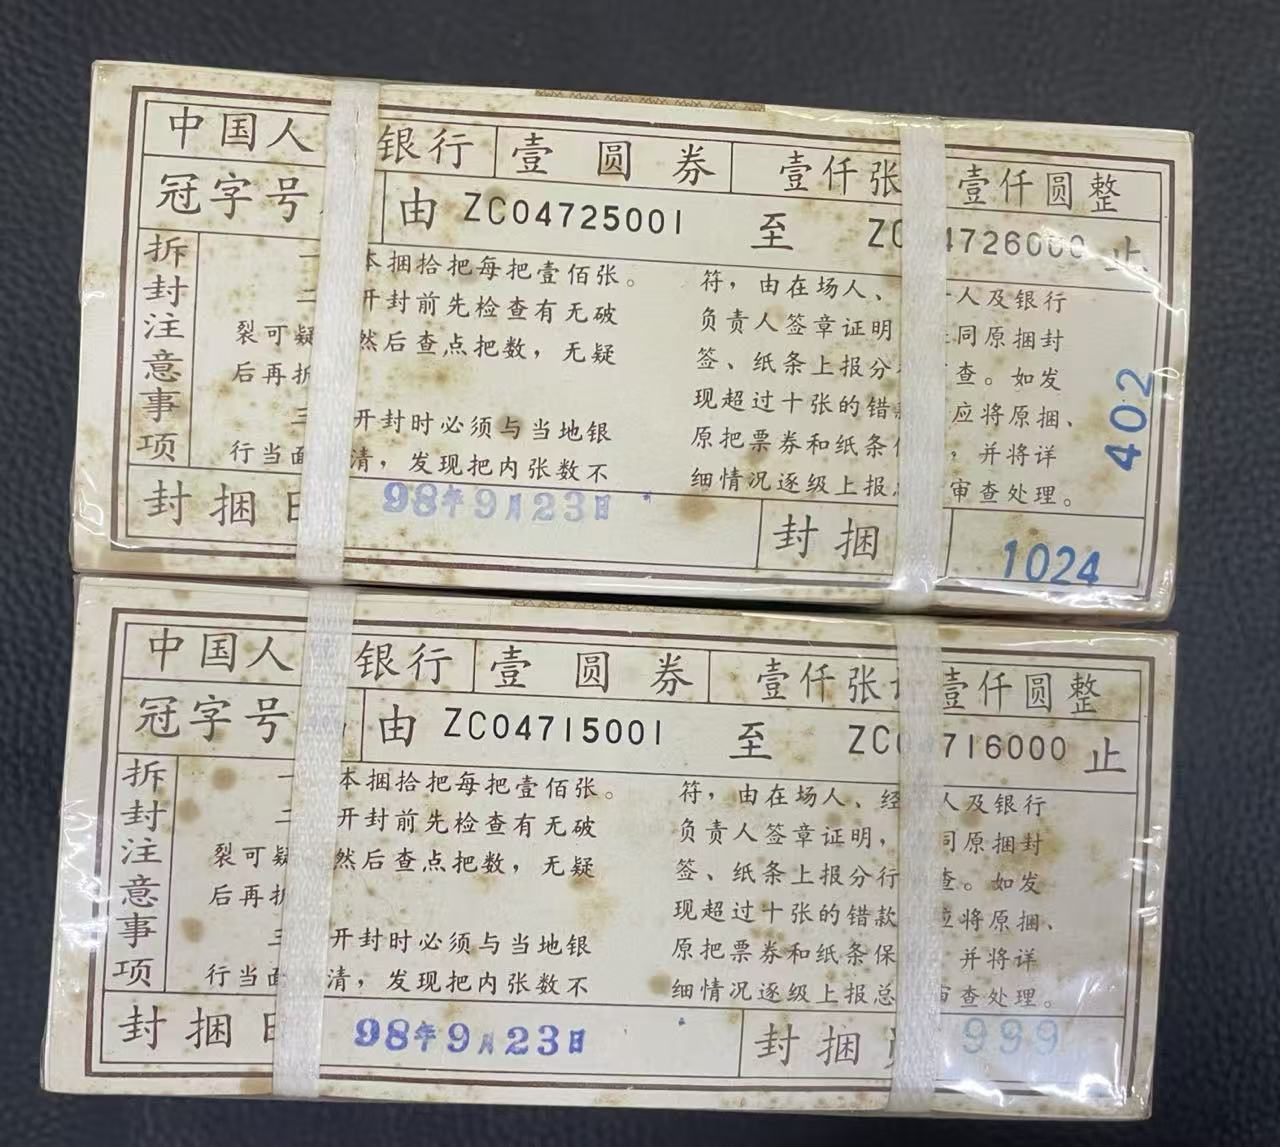 中国人 银行 壹圆券 壹仟张 壹仟圆整
冠字号 由 ZC04725001 至 ZC 4726000 止
拆封注意事项
一 本捆拾把每把壹佰张。
二 开封前先检查有无破
裂可疑 然后查点把数，无疑
后再拆
三 开封时必须与当地银
行当面 清，发现把内张数不
符，由在场人、 人及银行
负责人签章证明 同原捆封
签、纸条上报分 查。如发
现超过十张的错款 应将原捆、
原把票券和纸条保 ，并将详
细情况逐级上报 审查处理。
402
封捆日 98年9月23日 封捆 1024
中国人 银行 壹圆券 壹仟张 壹仟圆整
冠字号 由 ZC04715001 至 ZC 716000 止
拆封注意事项
一 本捆拾把每把壹佰张。
二 开封前先检查有无破
裂可疑 然后查点把数，无疑
后再拆
三 开封时必须与当地银
行当面 清，发现把内张数不
符，由在场人、经 人及银行
负责人签章证明， 同原捆封
签、纸条上报分行 查。如发
现超过十张的错款 应将原捆、
原把票券和纸条保 并将详
细情况逐级上报总 审查处理。
封捆日 98年9月23日 封捆 999